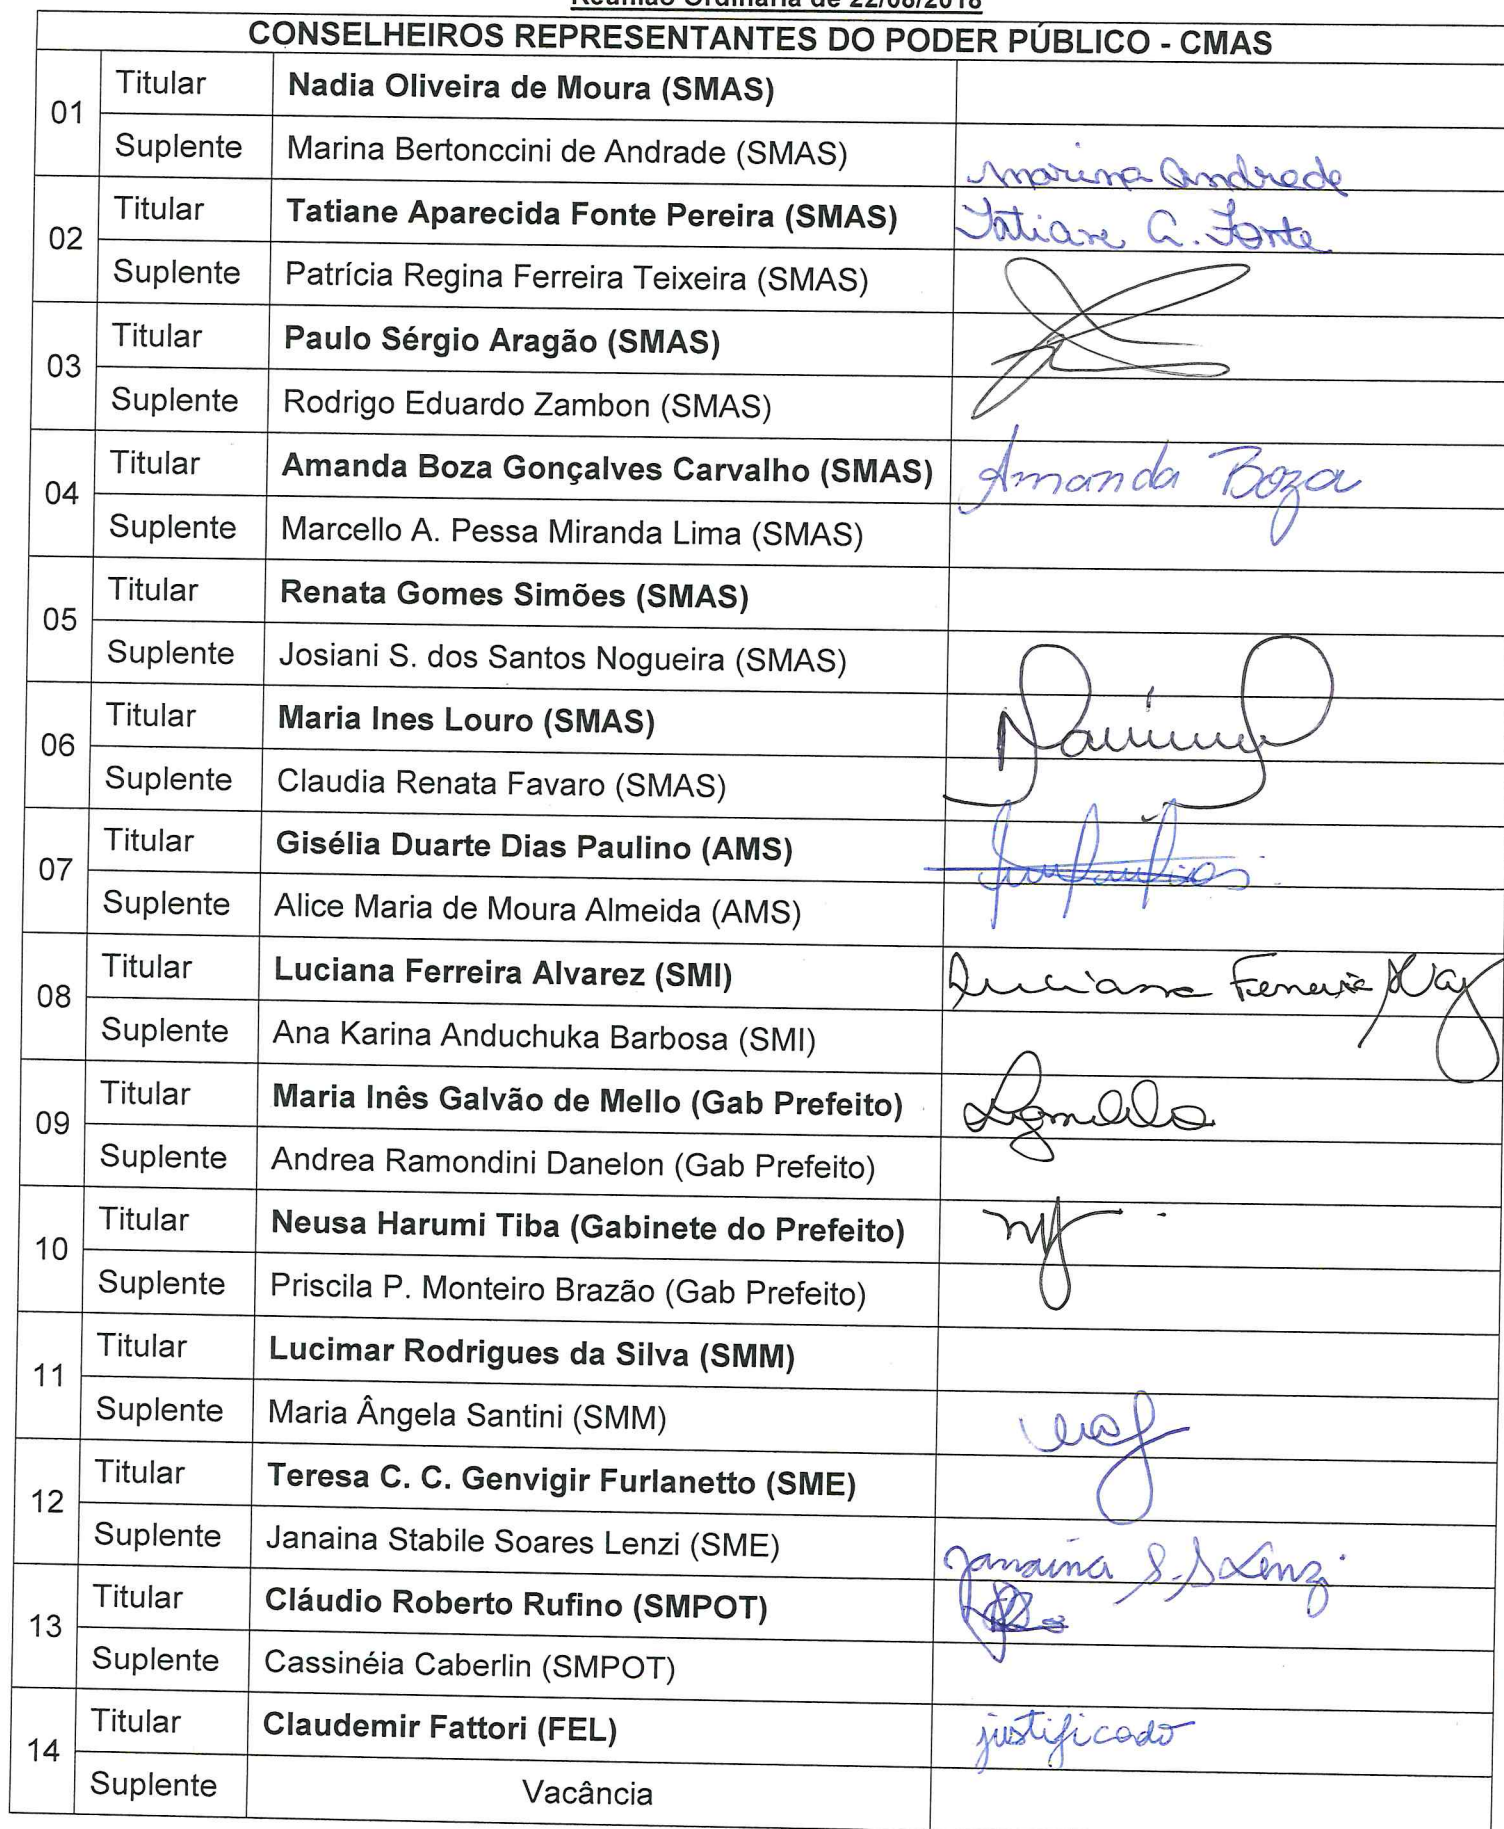 Reunião Ordinária de 22/08/2018
CONSELHEIROS REPRESENTANTES DO PODER PÚBLICO - CMAS
01
Titular Nadia Oliveira de Moura (SMAS)
Suplente Marina Bertonccini de Andrade (SMAS) Marina Andrade
02
Titular Tatiane Aparecida Fonte Pereira (SMAS) Tatiane A. Fonte
Suplente Patrícia Regina Ferreira Teixeira (SMAS)
03
Titular Paulo Sérgio Aragão (SMAS)
Suplente Rodrigo Eduardo Zambon (SMAS)
04
Titular Amanda Boza Gonçalves Carvalho (SMAS) Amanda Boza
Suplente Marcello A. Pessa Miranda Lima (SMAS)
05
Titular Renata Gomes Simões (SMAS)
Suplente Josiani S. dos Santos Nogueira (SMAS)
06
Titular Maria Ines Louro (SMAS)
Suplente Claudia Renata Favaro (SMAS)
07
Titular Gisélia Duarte Dias Paulino (AMS)
Suplente Alice Maria de Moura Almeida (AMS)
08
Titular Luciana Ferreira Alvarez (SMI) Luciana Ferreira
Suplente Ana Karina Anduchuka Barbosa (SMI)
09
Titular Maria Inês Galvão de Mello (Gab Prefeito)
Suplente Andrea Ramondini Danelon (Gab Prefeito)
10
Titular Neusa Harumi Tiba (Gabinete do Prefeito)
Suplente Priscila P. Monteiro Brazão (Gab Prefeito)
11
Titular Lucimar Rodrigues da Silva (SMM)
Suplente Maria Ângela Santini (SMM)
12
Titular Teresa C. C. Genvigir Furlanetto (SME)
Suplente Janaina Stabile Soares Lenzi (SME) Janaina S. S Lenzi
13
Titular Cláudio Roberto Rufino (SMPOT)
Suplente Cassinéia Caberlin (SMPOT)
14
Titular Claudemir Fattori (FEL) justificado
Suplente Vacância